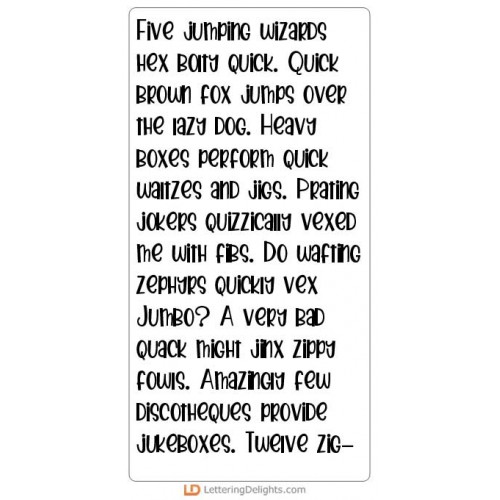 Five jumping wizards
hex bolty quick. Quick
brown fox jumps over
the lazy dog. Heavy
boxes perform quick
waltzes and jigs. Prating
jokers quizzically vexed
me with fibs. Do wafting
zephyrs quickly vex
Jumbo? A very bad
quack might jinx zippy
fowls. Amazingly few
discotheques provide
jukeboxes. Twelve zig-
LD LetteringDelights.com